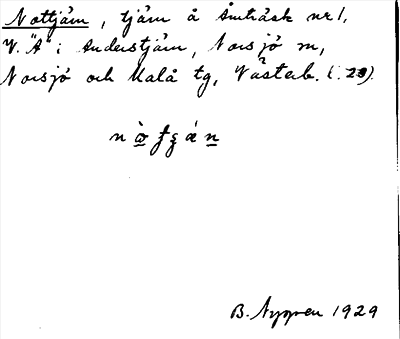 Nottjärn, tjärn å Åmträsk nr 1,
V. "A" i Anderstjärn, Norsjö sn,
Norsjö och Malå tg, Västerb. (: 23).
B. Nygren 1929